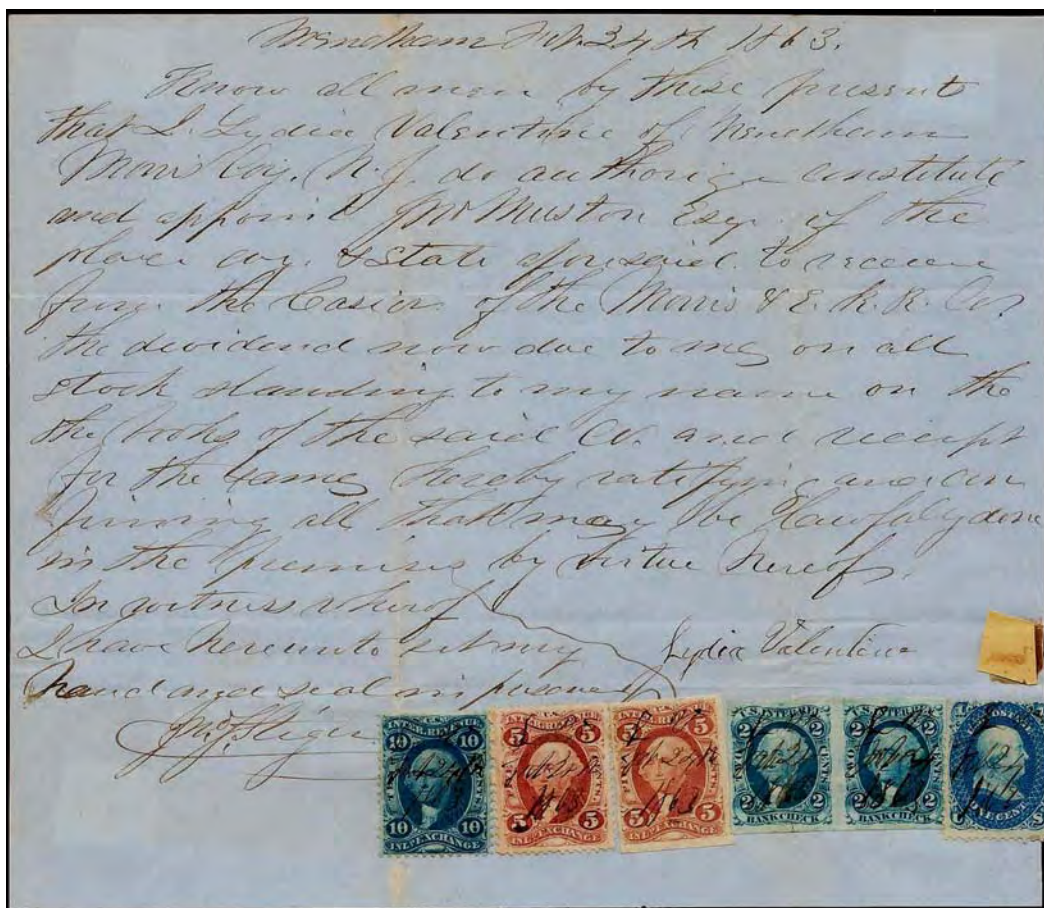 Mendham Feb. 24th 1863.
Know all men by these present
that I. Lydia Valentine of Mendham
Morris Coy. N.J. do authorize constitute
and appoint Esqr. of the
place coy. & State aforesaid. to receive
the Casier of the Morris & E. R. R. Co.
the dividend now due to me on all
stock standing to my name on the
the books of the said Co. and receipt
for the same hereby ratifying and con
firming all that may be Lawfuly done
in the Premises by virtue hereof.
In witness wherof
I have hereunto set my
hand and seal in presence
Lydia Valentine
10 10
10 INL. EXCHANGE 10
L V
Feb 24th
1863
5 5
5 INL. EXCHANGE 5
Feb 24th
1863
5 5
5 INL. EXCHANGE 5
U.S. INTER. REV.
TWO CENTS
2 BANK CHECK 2
Feb 24
1863
U.S. INTER. REV.
TWO CENTS
2 BANK CHECK 2
Feb 24
1863
U.S. POSTAGE
ONE CENT
Feb 24